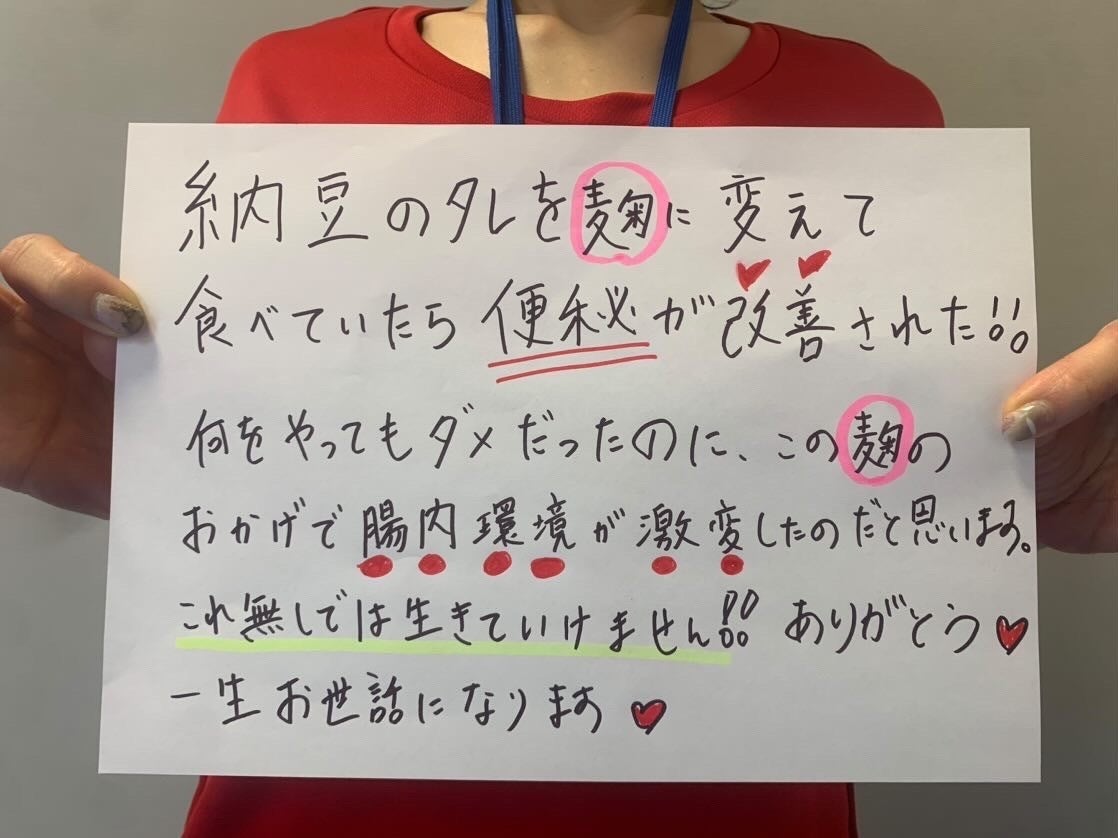 納豆のタレを麹に変えて
食べていたら便秘が改善された!!
何をやってもダメだったのに、この麹の
おかげで腸内環境が激変したのだと思います。
これ無しでは生きていけません!! ありがとう♥
一生お世話になります♥